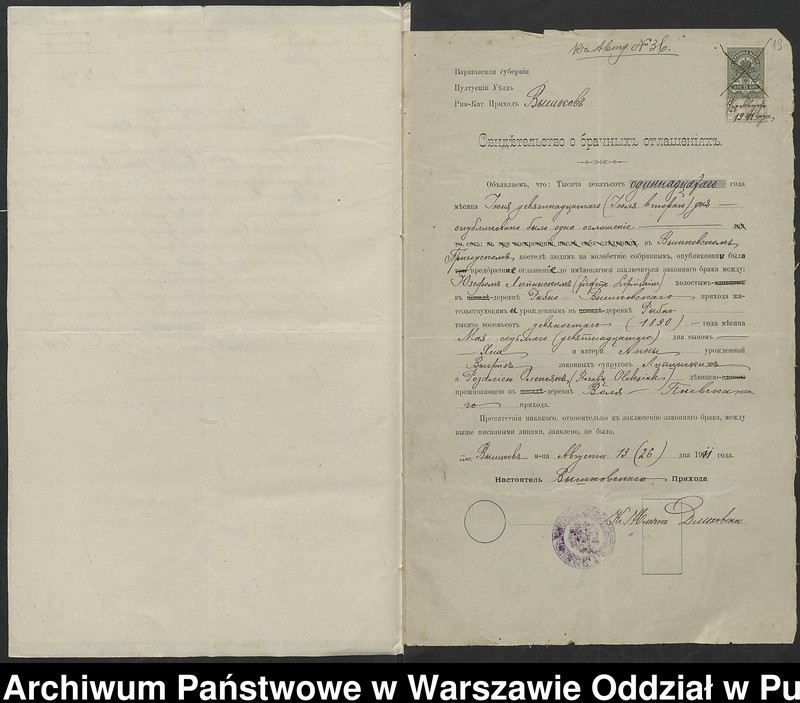 Къ Акту № 36.
19
Варшавская губернія
Пултускій Уѣздъ
Рим-Кат. Приходъ Вышковъ
13 Августа
1911 года
Свидѣтельство о брачныхъ оглашеніяхъ.
Объявляемъ, что: Тысяча девятьсотъ одиннадцатаго года
мѣсяца Іюня девятнадцатаго (Іюля второго) дня
опубликовано было одно оглашеніе
въ Вышковскомъ
Приходскомъ костелѣ людямъ на молебствіе собраннымъ, опубликовано было
предбрачное оглашеніе до имѣющагося заключиться законнаго брака между:
Юзефомъ Липинскимъ (Józefem Lipińskim) холостымъ
въ деревнѣ Рыбно Вышковскаго прихода жи-
тельствующимъ и урожденнымъ въ деревнѣ Рыбно
тысяча восемьсотъ девяностаго (1890) года мѣсяца
Мая седьмого (девятнадцатаго) дня сыномъ
Яна и матери Анны урожденной
законныхъ супруговъ Липинскихъ
а Розаліею Олексякъ (Rozalią Oleksiak) дѣвицею
проживающею въ деревнѣ Воля Пневска-
го прихода.
Препятствія никакого, относительно къ заключенію законнаго брака, между
выше писанными лицами, заявлено, не было,
пос. Вышковъ м-ца Августа 13 (26) дня 1911 года.
Настоятель Вышковскаго Прихода
Кс.
Archiwum Państwowe w Warszawie Oddział w Pu